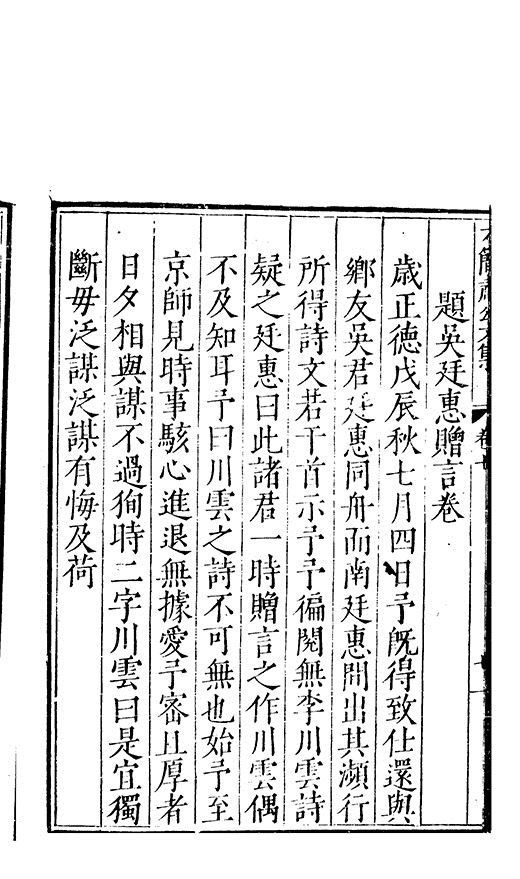 題吳廷惠贈言卷
歲正德戊辰秋七月四日予既得致仕還與
鄉友吳君廷惠同舟而南廷惠間出其瀕行
所得詩文若干首示予予徧閱無李川雲詩
疑之廷惠曰此諸君一時贈言之作川雲偶
不及知耳予曰川雲之詩不可無也始予至
京師見時事駭心進退無據愛予審且厚者
日夕相與謀不過狥時二字川雲曰是宜獨
斷毋泛謀泛謀有悔及荷